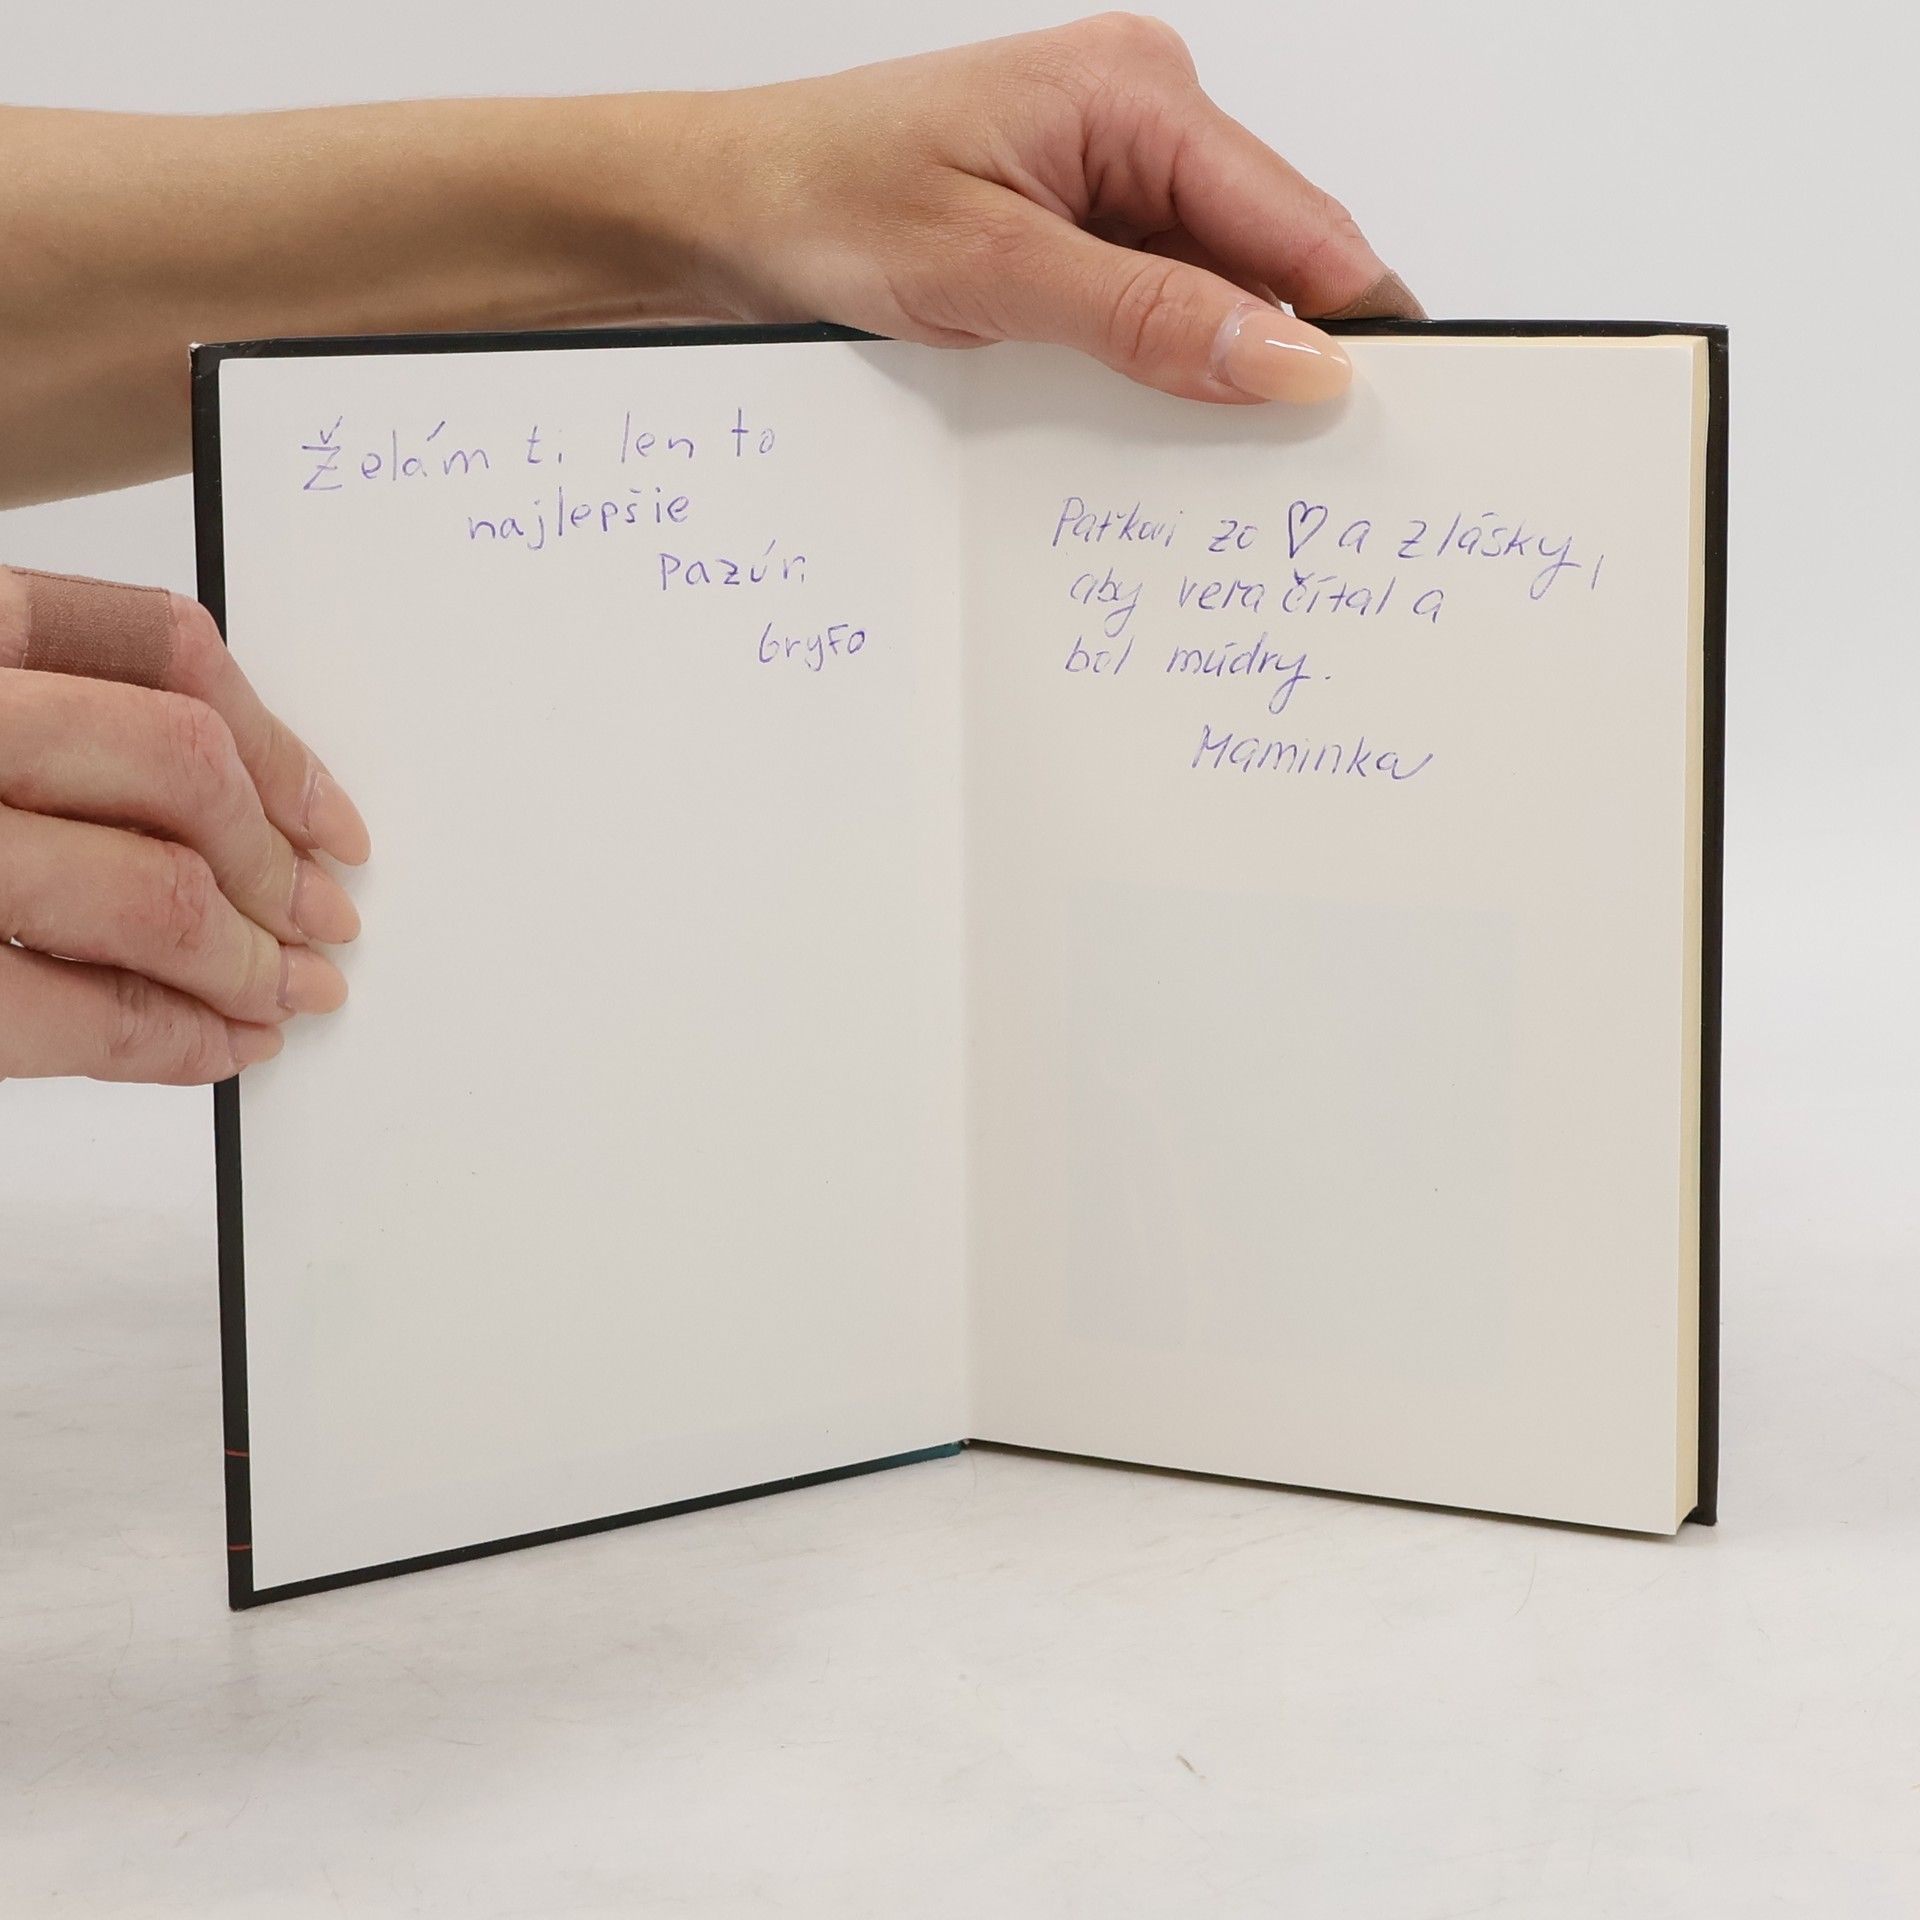 Želám ti len to
najlepšie
Pazúr
Gryfo
Paťkovi zo ♡ a z lásky,
aby veľa čítal a
bol múdry.
Maminka